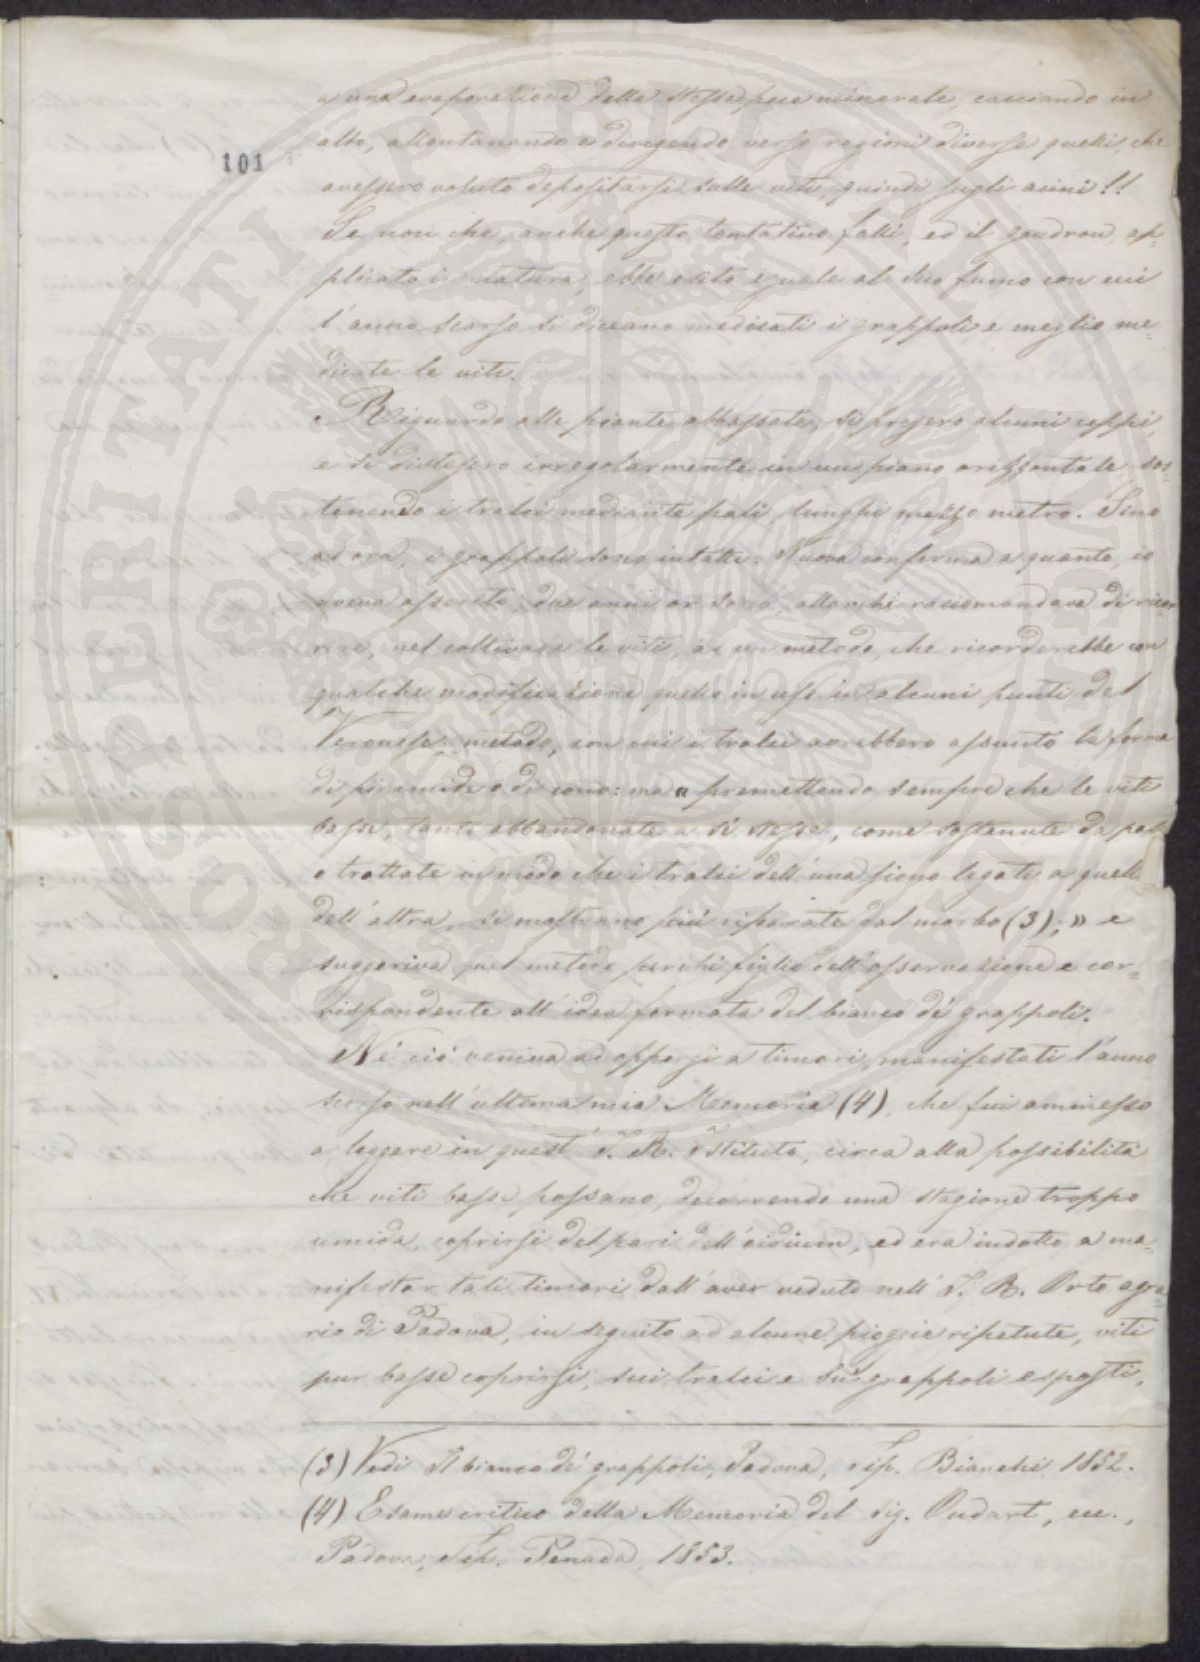 a una evaporazione della stessa pece minerale, cacciando in
alto, allontanando e dirigendo verso regioni diverse quelli, che
101
avessero voluto depositarsi sulle viti, quindi sugli acini!!
Se non che, anche questo tentativo fallì, ed il goudron, ap=
plicato in natura, ebbe esito eguale al suo fumo con cui
l'anno scorso si diceano medicati i grappoli e meglio me=
dicate le viti.
Riguardo alle piante abbassate, si presero alcuni ceppi,
e si distesero irregolarmente in un piano orizzontale sos=
tenendo i tralci mediante pali, lunghi mezzo metro. Sino
ad ora, i grappoli sono intatti. Nuova conferma a quanto, io
aveva asserito, due anni or sono, allorchè raccomandava di ricor=
rere, nel coltivare le viti, ad un metodo, che ricorderebbe con
qualche modificazione quello in uso in alcuni punti del
Veronese; metodo, con cui i tralci avrebbero assunto la forma
di piramide o di cono: ma « premettendo sempre che le viti
basse, tanto abbandonate a sè stesse, come sostenute da pali
o trattate in modo che i tralci dell'una sieno legati a quelli
dell'altra, si mostrano più riparate dal morbo (3); » e
suggeriva quel metodo perchè figlio dell'osservazione e cor=
rispondente all'idea formata del bianco de' grappoli.
Nè ciò veniva ad opporsi a timori, manifestati l'anno
scorso nell'ultima mia Memoria (4), che fui ammesso
a leggere in quest' I. R. Istituto, circa alla possibilità
che viti basse possano, decorrendo una stagione troppo
umida, coprirsi del pari dell'oidium, ed era indotto a ma=
nifestar tali timori dall'aver veduto nell' I. R. Orto agra=
rio di Padova, in seguito ad alcune pioggie ripetute, viti
pur basse coprirsi, sui tralci e sui grappoli esposti,
(3) Vedi Il bianco de' grappoli, Padova, Tip. Bianchi 1852.
(4) Esame critico della Memoria del sig. Oudart, ecc.,
Padova, Tip. Penada, 1853.
PROSPERITATI PUBLICAE